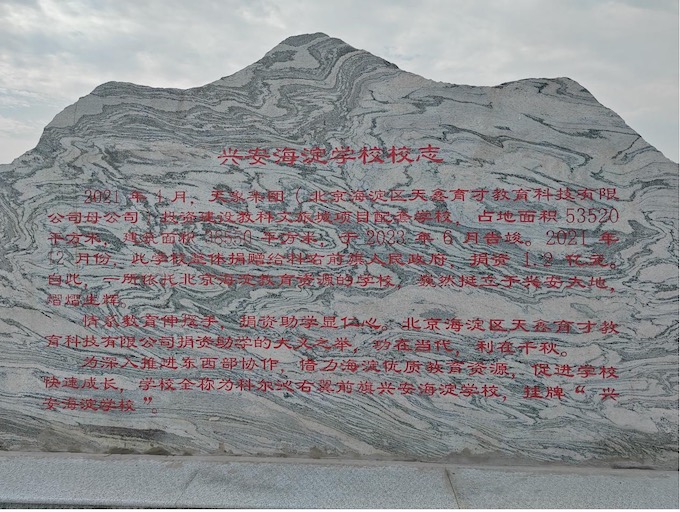 兴安海淀学校校志
2021年4月，天鑫集团（北京海淀区天鑫育才教育科技有限
公司母公司）投资建设教科文东城项目配套学校，占地面积53520
平方米，建筑面积 平方米，于2023年6月告竣。2021年
12月份，此学校整体捐赠给科右前旗人民政府，捐资1.2亿元。
自此，一所依托北京海淀教育资源的学校，巍然挺立于兴安大地，
熠熠生辉。
情系教育伸援手，捐资助学显仁心。北京海淀区天鑫育才教
育科技有限公司捐资助学的大义之举，功在当代，利在千秋。
为深入推进东西部协作，借力海淀优质教育资源，促进学校
快速成长，学校全称为科尔沁右翼前旗兴安海淀学校，挂牌“兴
安海淀学校”。